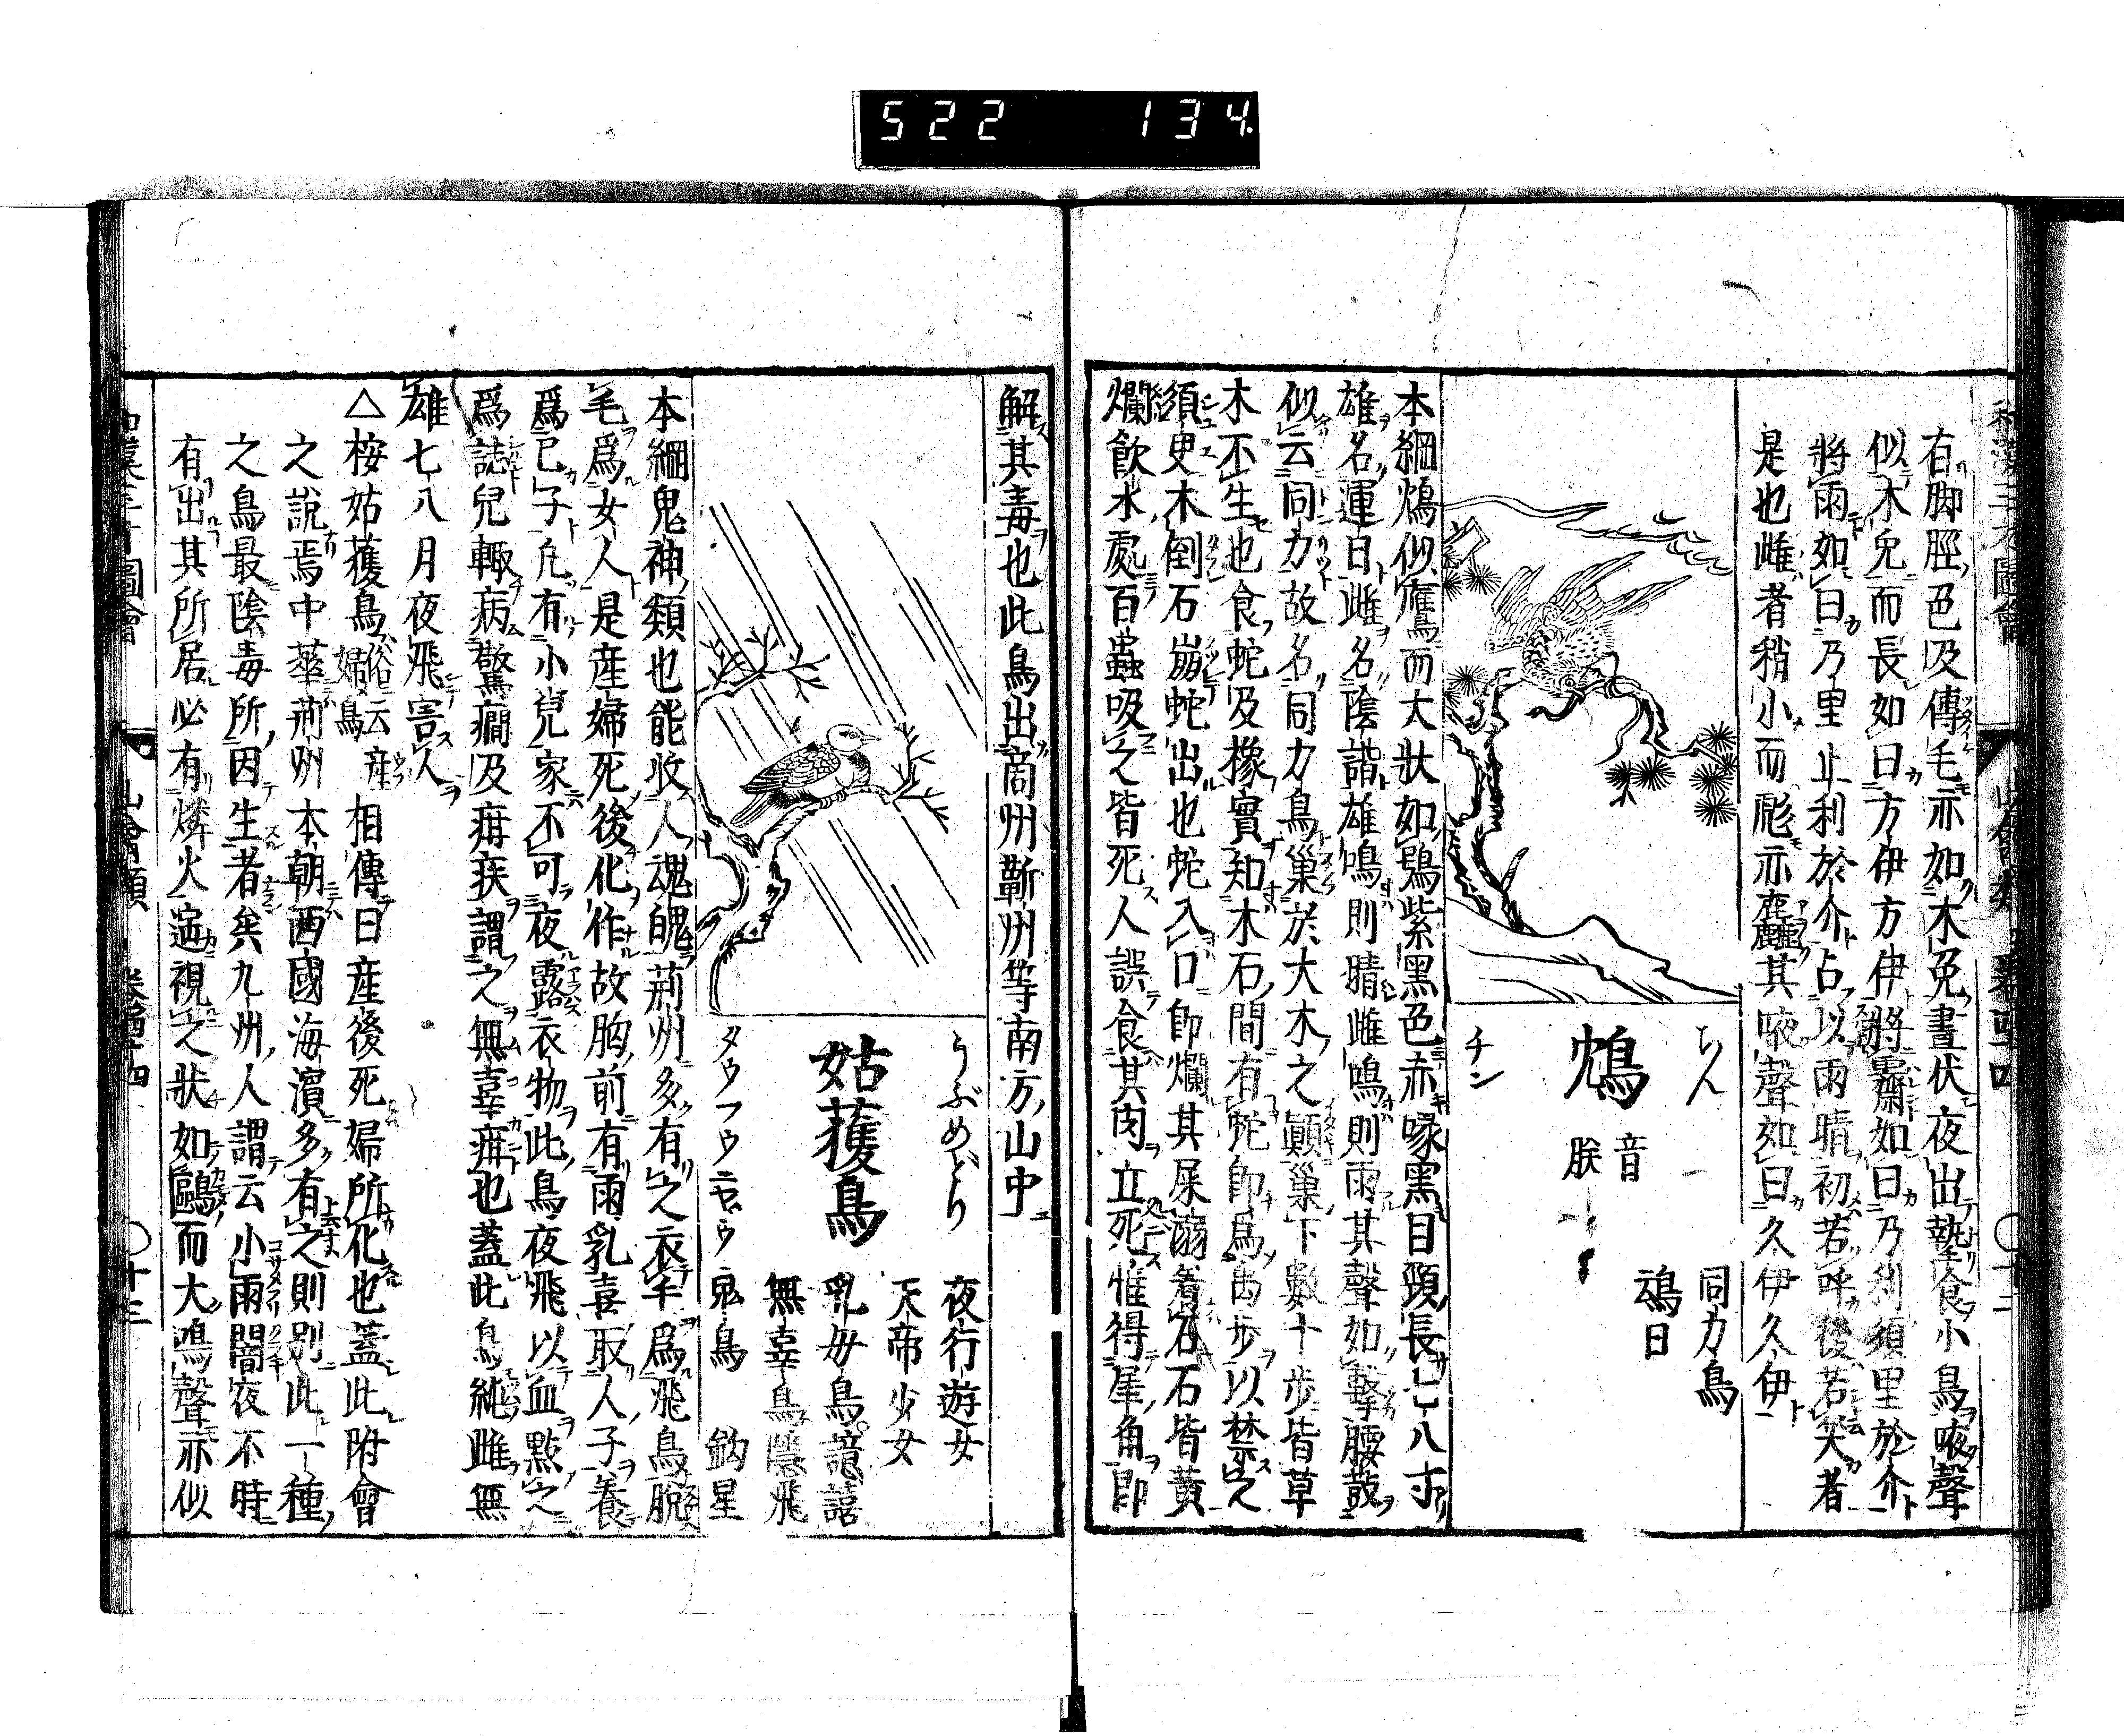 522 134.
有脚脛色及傳毛亦如木兔晝伏夜出執食小鳥啼聲
似木兔而長如曰方伊方伊將霽如曰乃利須里於介
將雨如曰乃里止利於介占以雨晴初若呼後若笑者
是也雌者稍小而彪亦麤其啼聲如曰久伊久伊
ちん
鴆
音朕
チン
同力鳥
鴆日
本綱鴆似鷹而大狀如鴞紫黑色赤喙黑目頸長七八寸
雄名運日雌名陰諧雄鳴則晴雌鳴則雨其聲如擊腰鼓
似云同力故名同力鳥巢於大木之巓巢下數十步皆草
木不生也食蛇及橡實知木石間有蛇卽爲禹步以禁之
須臾木倒石崩蛇出也蛇入口卽爛其屎溺着石石皆黃
爛飮水處百蟲吸之皆死人誤食其肉立死惟得犀角卽
解其毒也此鳥出商州蘄州等南方山中
うぶめどり
姑獲鳥
タウフウニヤウ
夜行遊女
天帝少女
乳母鳥 譩譆
無辜鳥 隱飛
鬼鳥 鈎星
本綱鬼神類也能收人魂魄荊州多有之衣毛爲飛鳥脫
毛爲女人是産婦死後化作故胸前有兩乳喜取人子養
爲己子凡有小兒家不可夜露衣物此鳥夜飛以血點之
爲誌兒輙病驚癇及疳疾謂之無辜疳也蓋此鳥純雌無
雄七八月夜飛害人
△桉姑獲鳥俗云産婦鳥相傳曰産後死婦所化也蓋此附會
之說焉中華荊州本朝西國海濱多有之則別此一種
之鳥最陰毒所因生者矣九州人謂云小雨闇夜不時
有出其所居必有燐火遙視之狀如鷗而大鳴聲亦似
和漢三才圖會 山禽類 卷四十四 〇十三